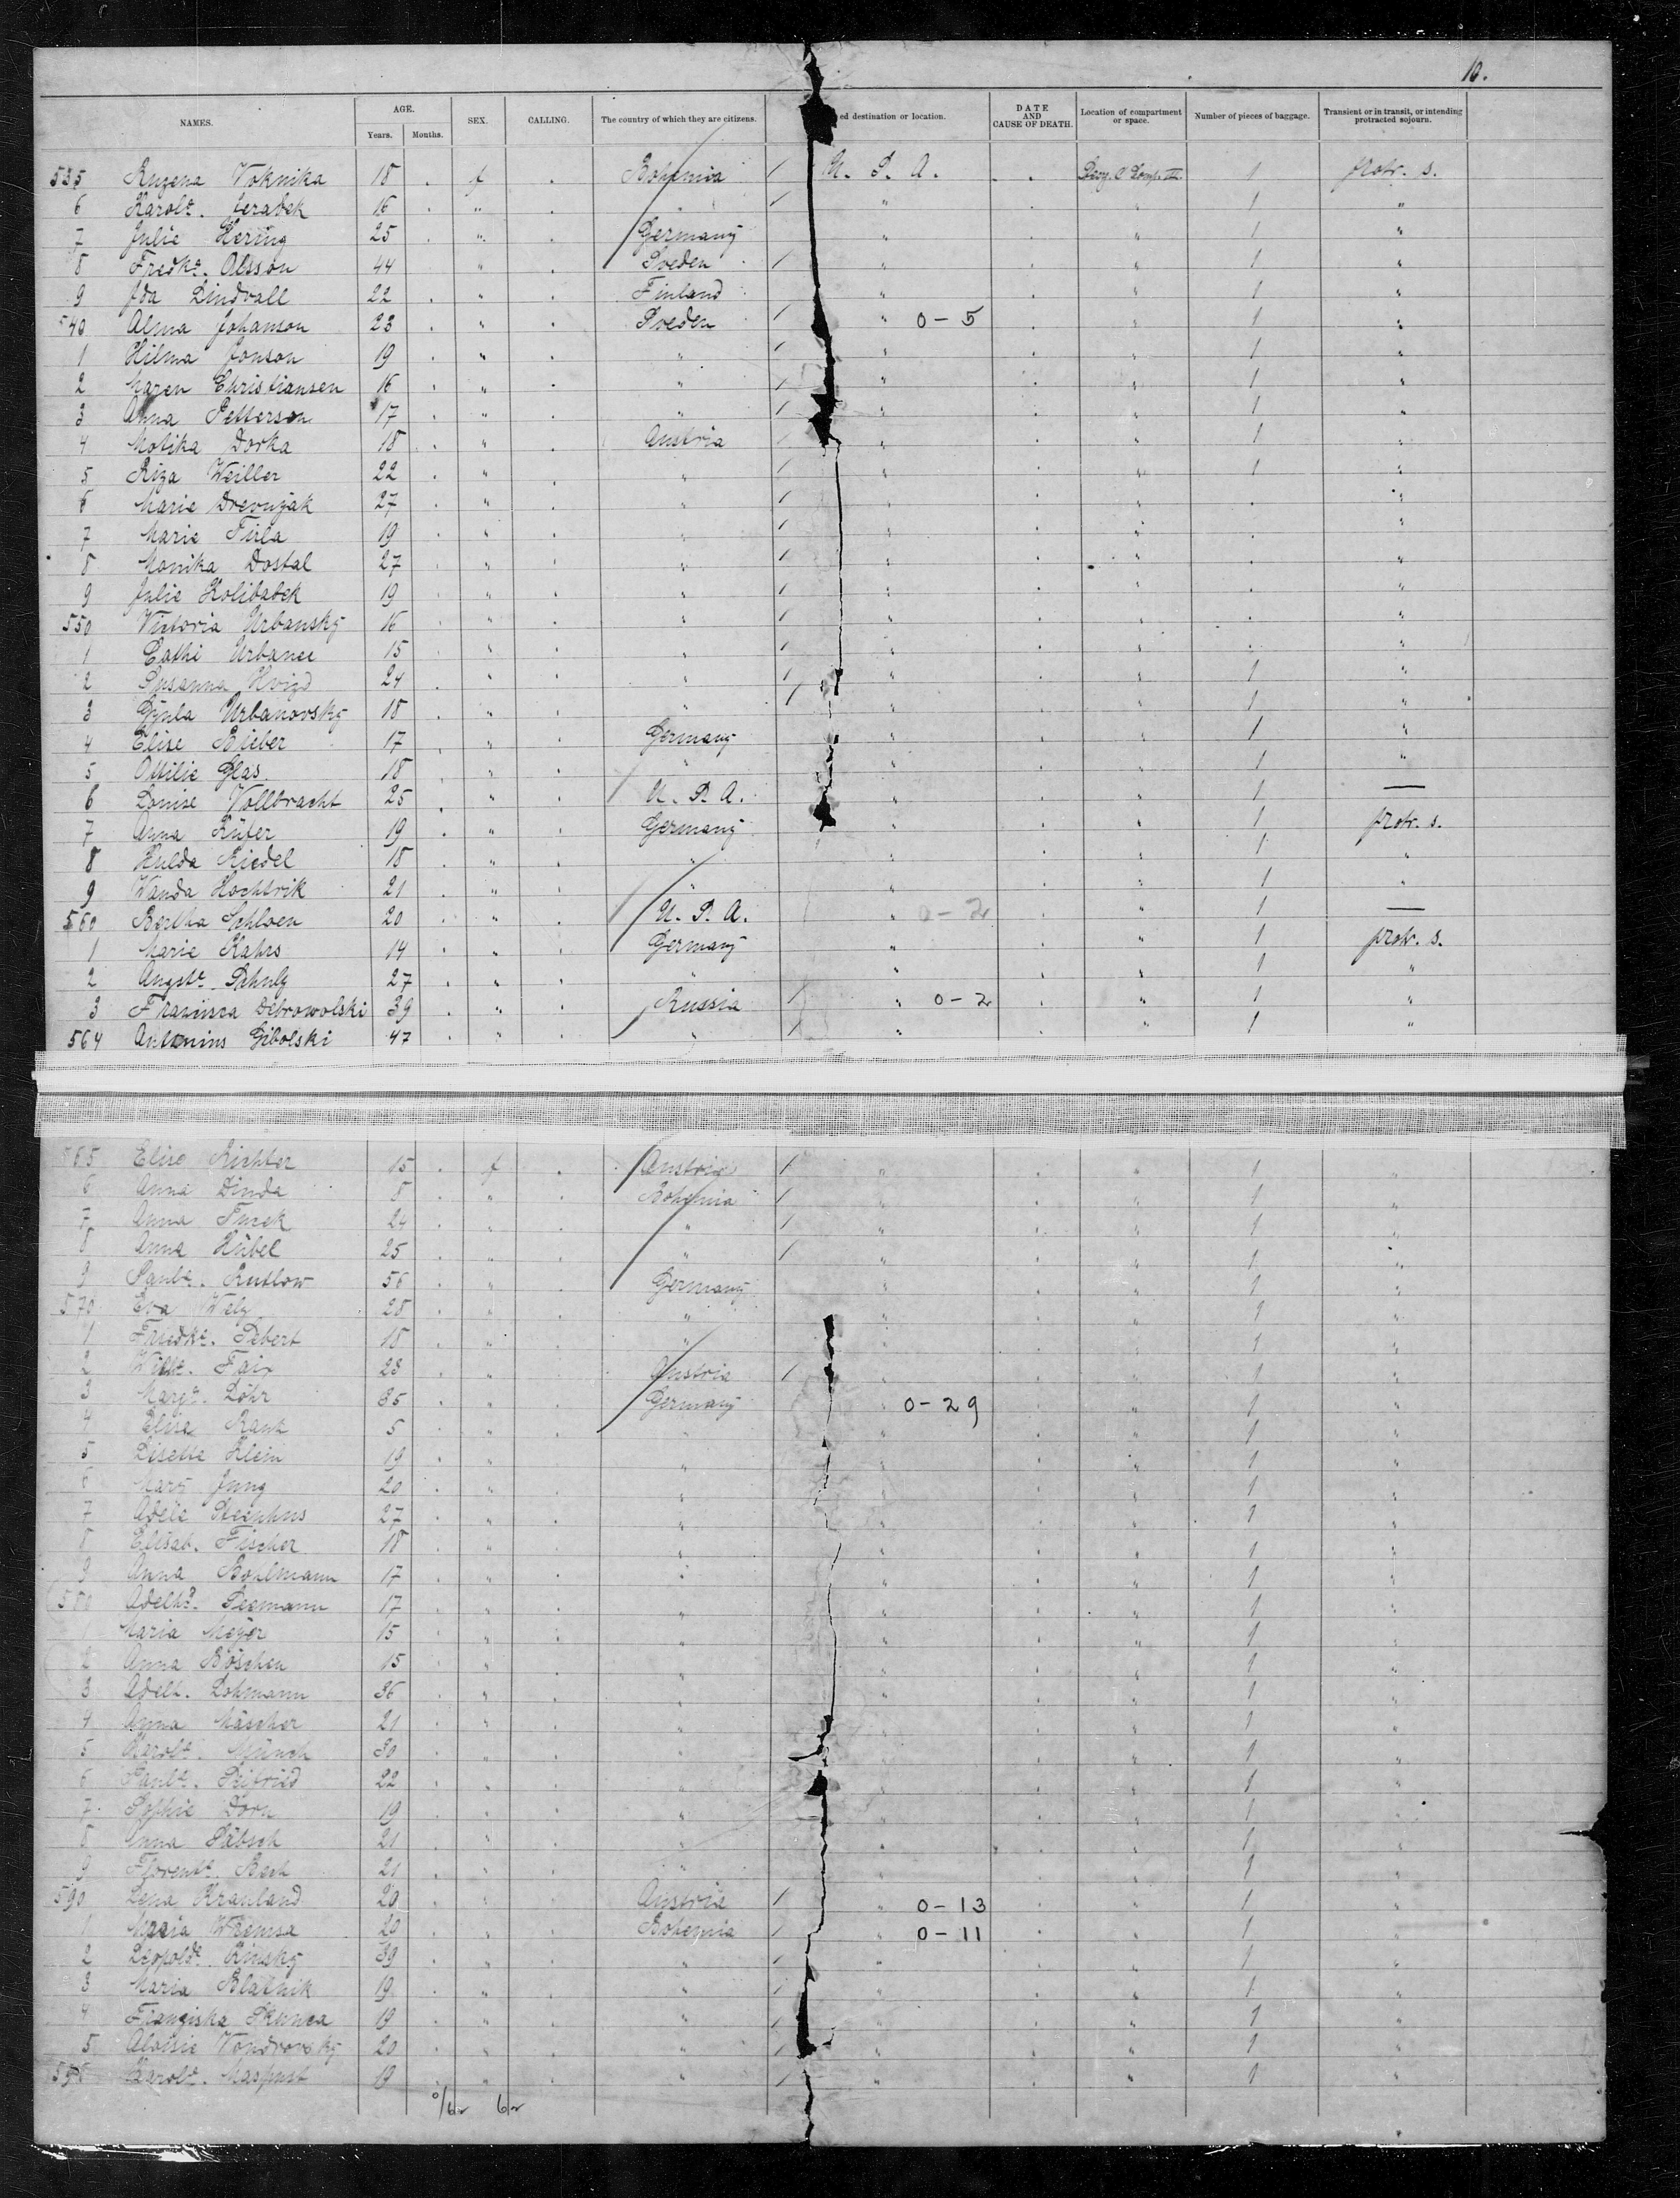 10.
NAMES. AGE. Years. Months. SEX. CALLING. The country of which they are citizens. ed destination or location. DATE AND CAUSE OF DEATH. Location of compartment or space. Number of pieces of baggage. Transient or in transit, or intending protracted sojourn.
535 Ruzena Voknika 18 . f . Bohemia / U. S. A. . . 1 protr. s.
6 Karol^e. Jerabek 16 . " . " / " . " 1 "
7 Julie Hering 25 . " . Germany " . " 1 "
8 Fredk^e. Olsson 44 " . Sveden / " . " 1 "
9 Ida Lindvall 22 . " . Finland " . " 1 "
540 Alma Johanson 23 . " . Sveden / " 0-5 . " 1 "
1 Hilma Jonson 19 . " . " / " . " 1 "
2 Maren Christiansen 16 . " . " / " . " 1 "
3 Anna Petterson 17 . " . " / " . " 1 "
4 Motika Dorka 18 . " . Austria / " . " 1 "
5 Riza Weiller 22 . " . " / " . " 1 "
6 Marie Drevnjak 27 . " . " / " . " . "
7 Marie Firla 19 . " . " / " . " . "
8 Monika Dostal 27 . " . " / " . " . "
9 Julie Kolibabek 19 . " . " / " . " . "
550 Victoria Urbansky 16 . " . " / " . " . "
1 Cathi Urbanec 15 . " . " / " . " . "
2 Susanna Hvizd 24 . " . " / " . " 1 "
3 Urbanovsky 18 . " . " / " . " 1 "
4 Elise Bieber 17 . " . Germany " . " 1 "
5 Ottilie Glas 18 . " . " " . " 1 "
6 Louise Vollbracht 25 . " . U. S. A. " . " 1 —
7 Anna Rüfer 19 . " . Germany " . " 1 protr. s.
8 Hulda Riedel 18 . " . " " . " 1 "
9 Wanda Hochtrik 21 . " . " " . " 1 "
560 Bertha Schloen 20 . " . U. S. A. " 0-2 . " 1 —
1 Marie Kahrs 14 . " . Germany " . " 1 protr. s.
2 August^e. Schulz 27 . " . " " . " 1 "
3 Francisca Debrowolski 39 . " . Russia / " 0-2 . " 1 "
564 Antonins Gibolski 47 . " . " / " . " 1 "
565 Elise Richter 15 . f . Austria / " . " 1 "
6 Anna Dinda 8 . " . Bohemia / " . " 1 "
7 Anna Turek 24 . " . " / " . " 1 "
8 Anna Hübel 25 . " . " / " . " 1 "
9 Paul^e. Rutlow 56 . " . Germany " . " 1 "
570 Eva Welz 28 . " . " " . " 1 "
1 Friedk^e. Sebert 18 . " . " " . " 1 "
2 Faix 23 . " . Austria / " . " 1 "
3 Marg^e. Löhr 35 . " . Germany " 0-29 . " 1 "
4 Elise Rank 5 . " . " " . " 1 "
5 Lisette Klein 19 . " . " " . " 1 "
6 Mary Jung 20 . " . " " . " 1 "
7 Adele 27 . " . " " . " 1 "
8 Elisab. Fischer 18 . " . " " . " 1 "
9 Anna Bohlmann 17 . " . " " . " 1 "
580 Adelh^d. Seemann 17 . " . " " . " 1 "
1 Maria Meyer 15 . " . " " . " 1 "
2 Anna Böschen 15 . " . " " . " 1 "
3 Adelh. Lohmann 36 . " . " " . " 1 "
4 Anna Mäscher 21 . " . " " . " 1 "
5 Karol^e. Münch 30 . " . " " . " 1 "
6 Paul^e. Seifried 22 . " . " " . " 1 "
7 Sophie Dorn 19 . " . " " . " 1 "
8 Anna 21 . " . " " . " 1 "
9 Florent^e. Bech 21 . " . " " . " 1 "
590 Lena Kranland 20 . " . Austria / " 0-13 . " 1 "
1 Maria 20 . " . Bohemia / " 0-11 . " 1 "
2 Leopold^e. Kinsky 39 . " . " / " . " 1 "
3 Maria Blatnik 19 . " . " / " . " 1 "
4 Franziska 19 . " . " / " . " 1 "
5 Aloisie Vondrovsky 20 . " . " / " . " 1 "
596 Karol^e. Maspust 19 . " . " / " . " 1 "